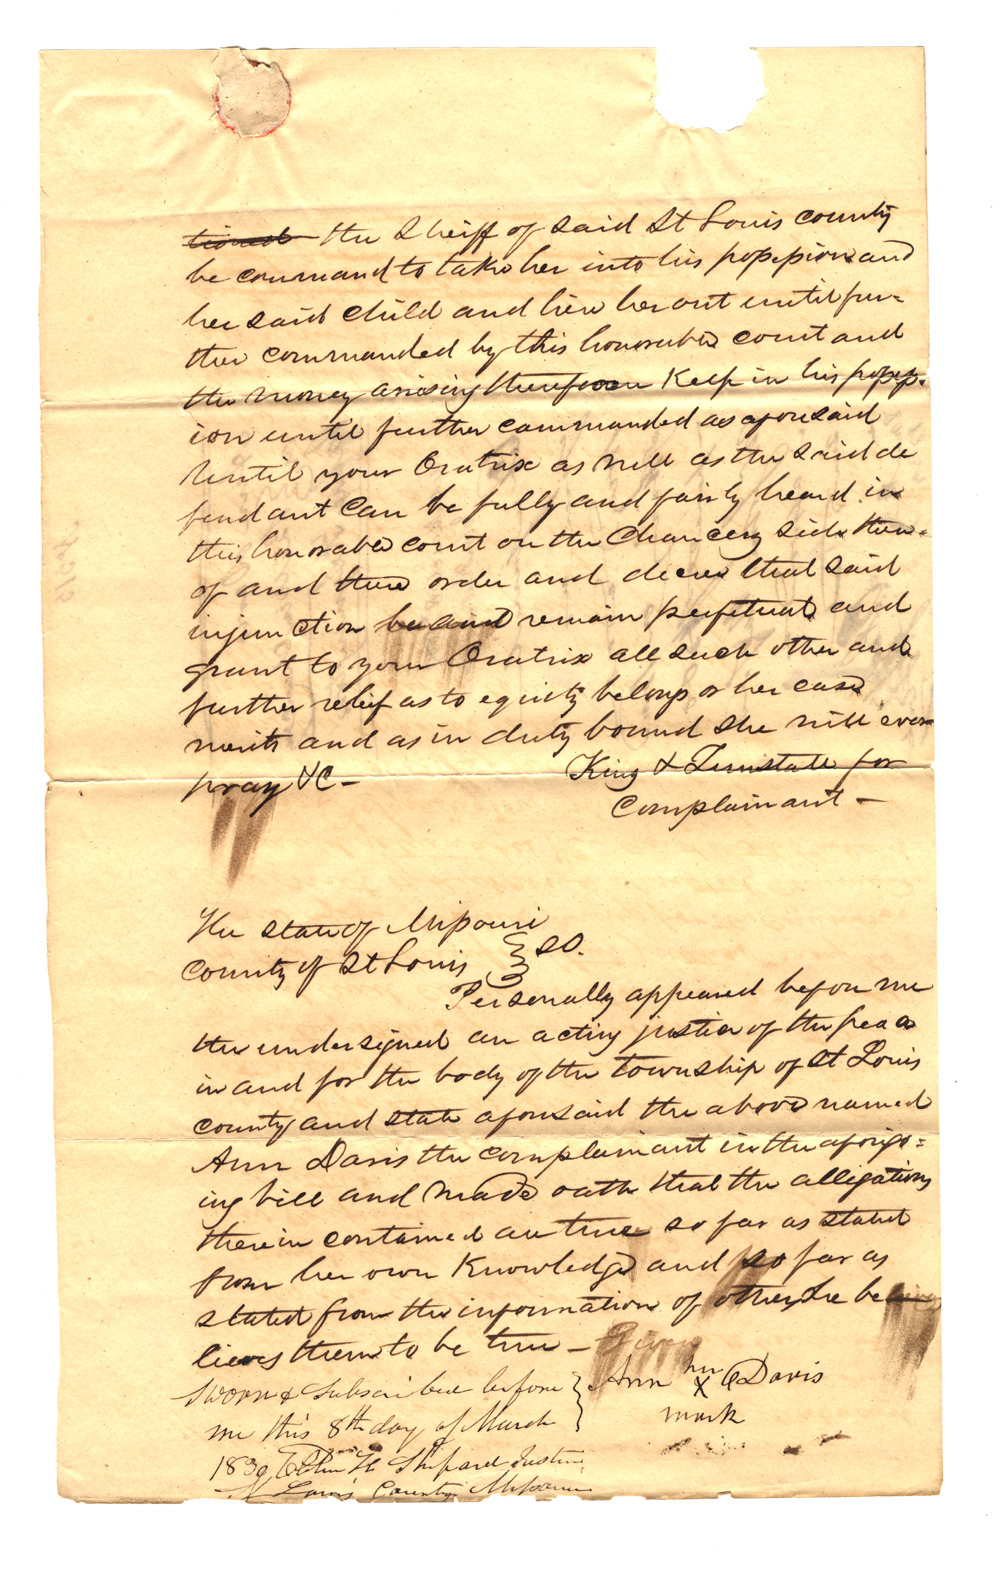 tioned the Sheriff of said St Louis county
be command to take her into his possession and
her said child and hire her out until fur-
ther commanded by this honorable court and
the money arising therefrom Keep in his possess-
ion until further commanded as aforesaid
Until your Oratrix as well as the said de
fendant can be fully and fairly heard in
this honorable court on the Chancery side there-
of and there order and decree that said
injunction remain perpetual and
grant to your Oratrix all such other and
further relief as to equity belongs or her case
merits and as in duty bound she will ever
pray &C -
King & for
Complainant -
The state of Missouri
County of St Louis } SS.
Personally appeared before me
the undersigned an acting justice of the peace
in and for the body of the township of St Louis
county and state aforesaid the above named
Ann Davis the complainant in the aforego=
ing bill and made oath that the allegations
therein contained are true so far as stated
from her own Knowledge and so far as
stated from the information of others she be
lieves them to be true -
Sworn & Subscribed before } Ann her Davis
me this 8th day of March X
mark
1830 Shepard Justice
St Louis County Missouri